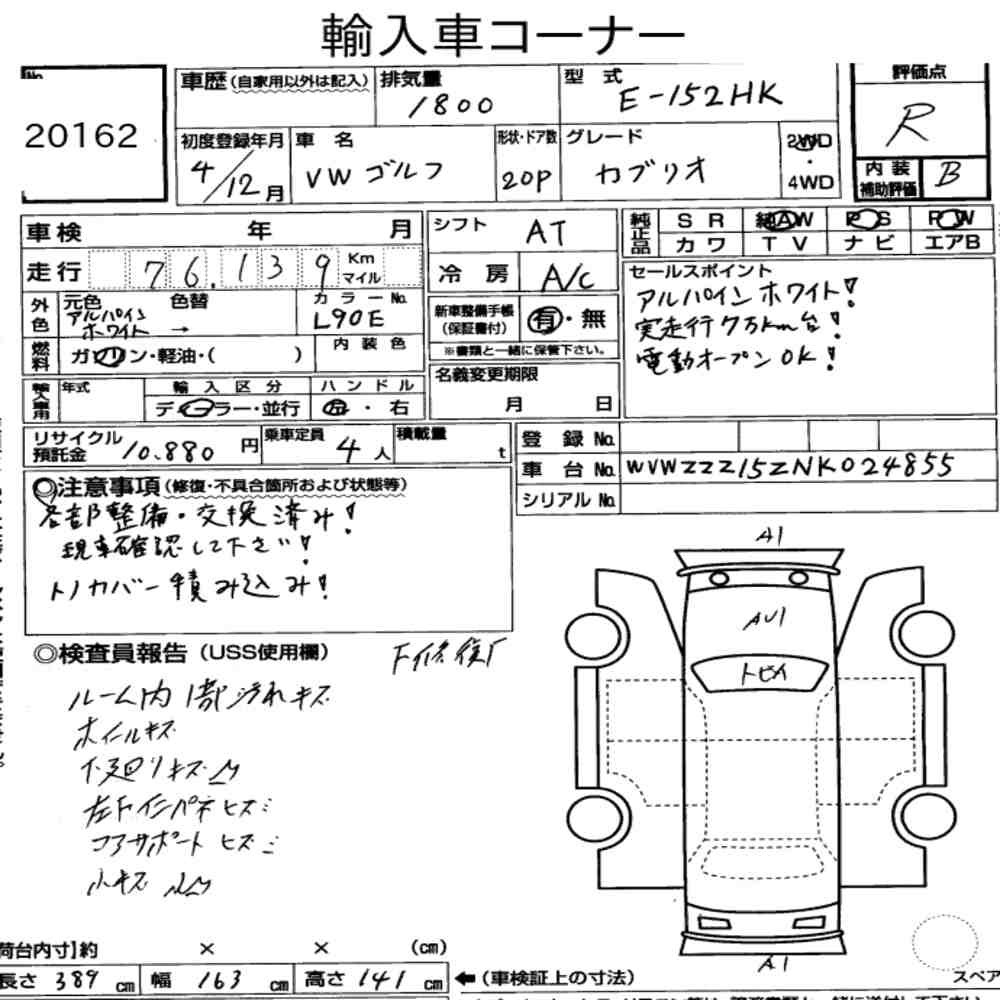 輸入車コーナー
No.
20162
車歴(自家用以外は記入)
排気量
1800
型 式
E-152HK
評価点
R
初度登録年月
4/12月
車 名
VW ゴルフ
形状・ドア数
20P
グレード
カブリオ
2WD
・
4WD
内 装
補助評価
B
車検 年 月
シフト
AT
純正品
S R
純AW
P S
P W
カ ワ
T V
ナ ビ
エアB
走行
76,139
Km
マイル
冷 房
A/C
セールスポイント
アルパインホワイト!
実走行7万km台!
電動オープンOK!
外色
元色 色替
アルパイン
ホワイト →
カラーNo.
L90E
新車整備手帳
(保証書付)
有・無
※書類と一緒に保管下さい。
燃料
ガソリン・軽油・( )
内 装 色
名義変更期限
月 日
輸入車用
年式
輸 入 区 分
ディーラー・並行
ハ ン ド ル
左 ・ 右
リサイクル
預託金
10.880 円
乗車定員
4 人
積載量
t
登 録 No.
車 台 No.
WVWZZZ15ZNK024855
シリアル No.
◎注意事項(修復・不具合箇所および状態等)
各部整備・交換済み!
現車確認して下さい!
トノカバー積み込み!
◎検査員報告(USS使用欄)
下修復
ルーム内1部汚れキズ
ホイールキズ
下廻りキズ
コアサポートヒズミ
小キズ
A1
AU1
トビイ
A1
荷台内寸】約 × × (cm)
長さ 389 cm
幅 163 cm
高さ 141 cm
←(車検証上の寸法)
スペア